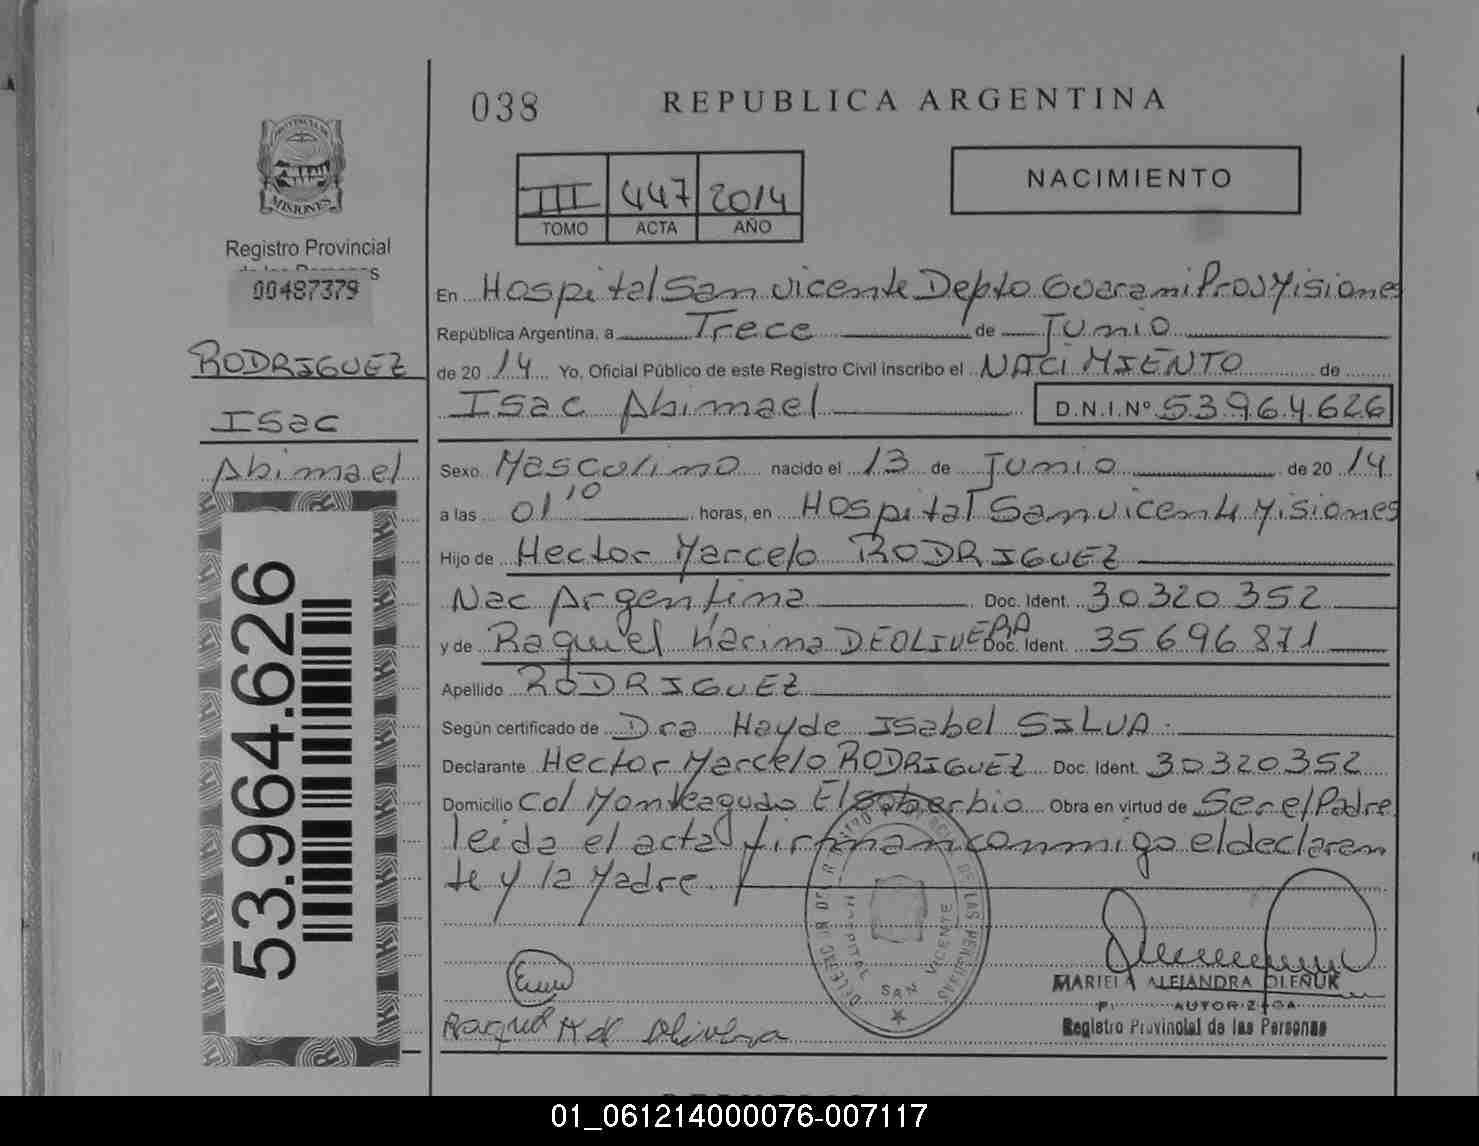 038
REPUBLICA ARGENTINA
PROVINCIA DE
MISIONES
Registro Provincial
de las Personas
00487379
RODRIGUEZ
Isac
Abimael
53.964.626
III 447 2014
TOMO ACTA AÑO
NACIMIENTO
En Hospital San vicente Depto Guarani Prov Misiones
República Argentina, a Trece de Junio
de 20 14 Yo, Oficial Público de este Registro Civil inscribo el NACIMIENTO de
Isac Abimael D.N.I.Nº 53.964.626
Sexo Masculino nacido el 13 de Junio de 20 14
a las 01 10 horas, en Hospital San vicente Misiones
Hijo de Hector Marcelo RODRIGUEZ
Nac Argentina Doc. Ident. 30320352
y de Raquel Karina DEOLIVERA Doc. Ident. 35696871
Apellido RODRIGUEZ
Según certificado de Dra Hayde Isabel SILVA.
Declarante Hector Marcelo RODRIGUEZ Doc. Ident. 30320352
Domicilio Col Monteagudo El Soberbio Obra en virtud de Ser el Padre
leida el acta firman conmigo el declaran
te y la Madre
HOSPITAL SAN VICENTE
Raquel K de Olivera
MARIELA ALEJANDRA OLEÑUK
AUTORIZADA
Registro Provincial de las Personas
01_061214000076-007117